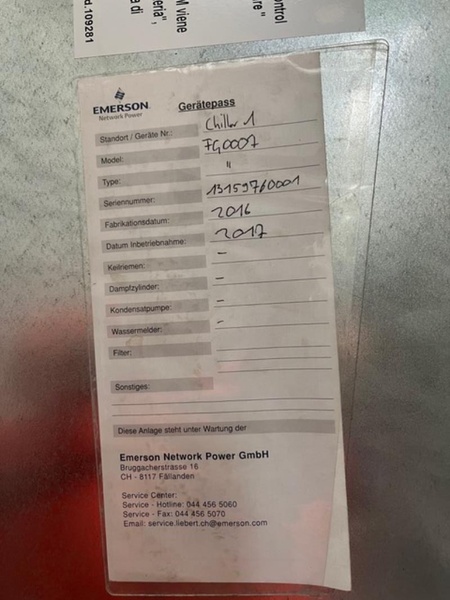 ontrol
are"
M viene
eria",
a di
d.109281
EMERSON
Network Power
Gerätepass
Standort / Geräte Nr.: Chiller 1
Model: FG0007
Type: "
Seriennummer: 13159760001
Fabrikationsdatum: 2016
Datum Inbetriebnahme: 2017
Keilriemen: -
Dampfzylinder: -
Kondensatpumpe: -
Wassermelder: -
Filter:
Sonstiges:
Diese Anlage steht unter Wartung der
Emerson Network Power GmbH
Bruggacherstrasse 16
CH - 8117 Fällanden
Service Center:
Service - Hotline: 044 456 5060
Service - Fax: 044 456 5070
Email: service.liebert.ch@emerson.com